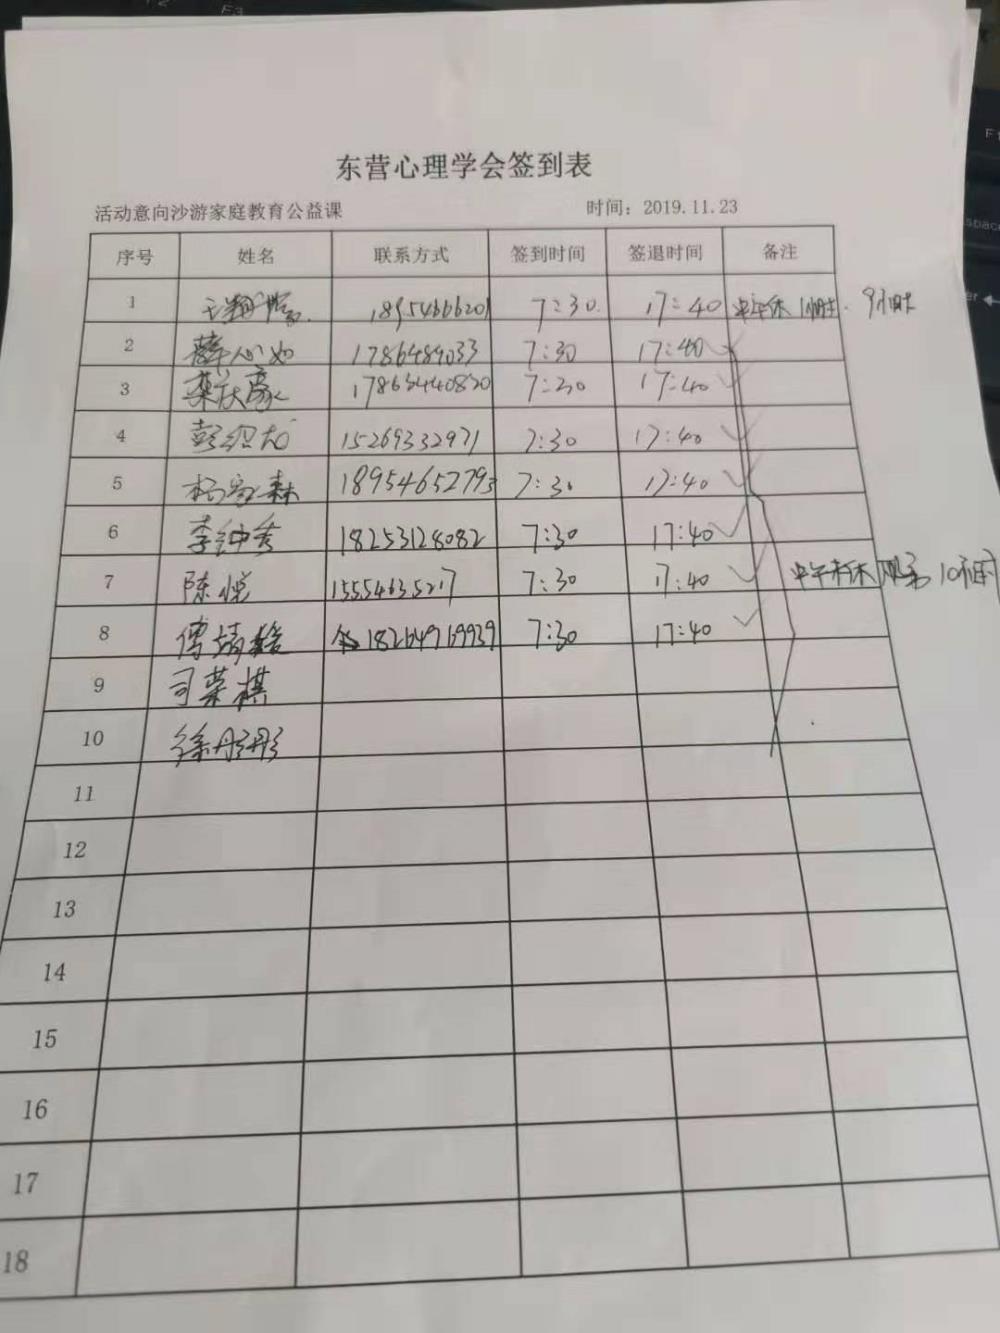 F3
东营心理学会签到表
活动意向沙游家庭教育公益课 时间：2019.11.23
序号 姓名 联系方式 签到时间 签退时间 备注
1 18954666201 7:30 17:40 中午休1小时. 9小时
2 薛心如 1786484033 7:30 17:40
3 栾庆豪 17863440830 7:30 17:40
4 彭绍龙 15269332971 7:30 17:40
5 杨家森 18954652793 7:30 17:40
6 李钟秀 18253128082 7:30 17:40
7 陈悦 15554635217 7:30 17:40 中午未休 服务10小时
8 傅婧 18264969939 7:30 17:40
9 司荣棋
10 徐彤彤
11
12
13
14
15
16
17
18